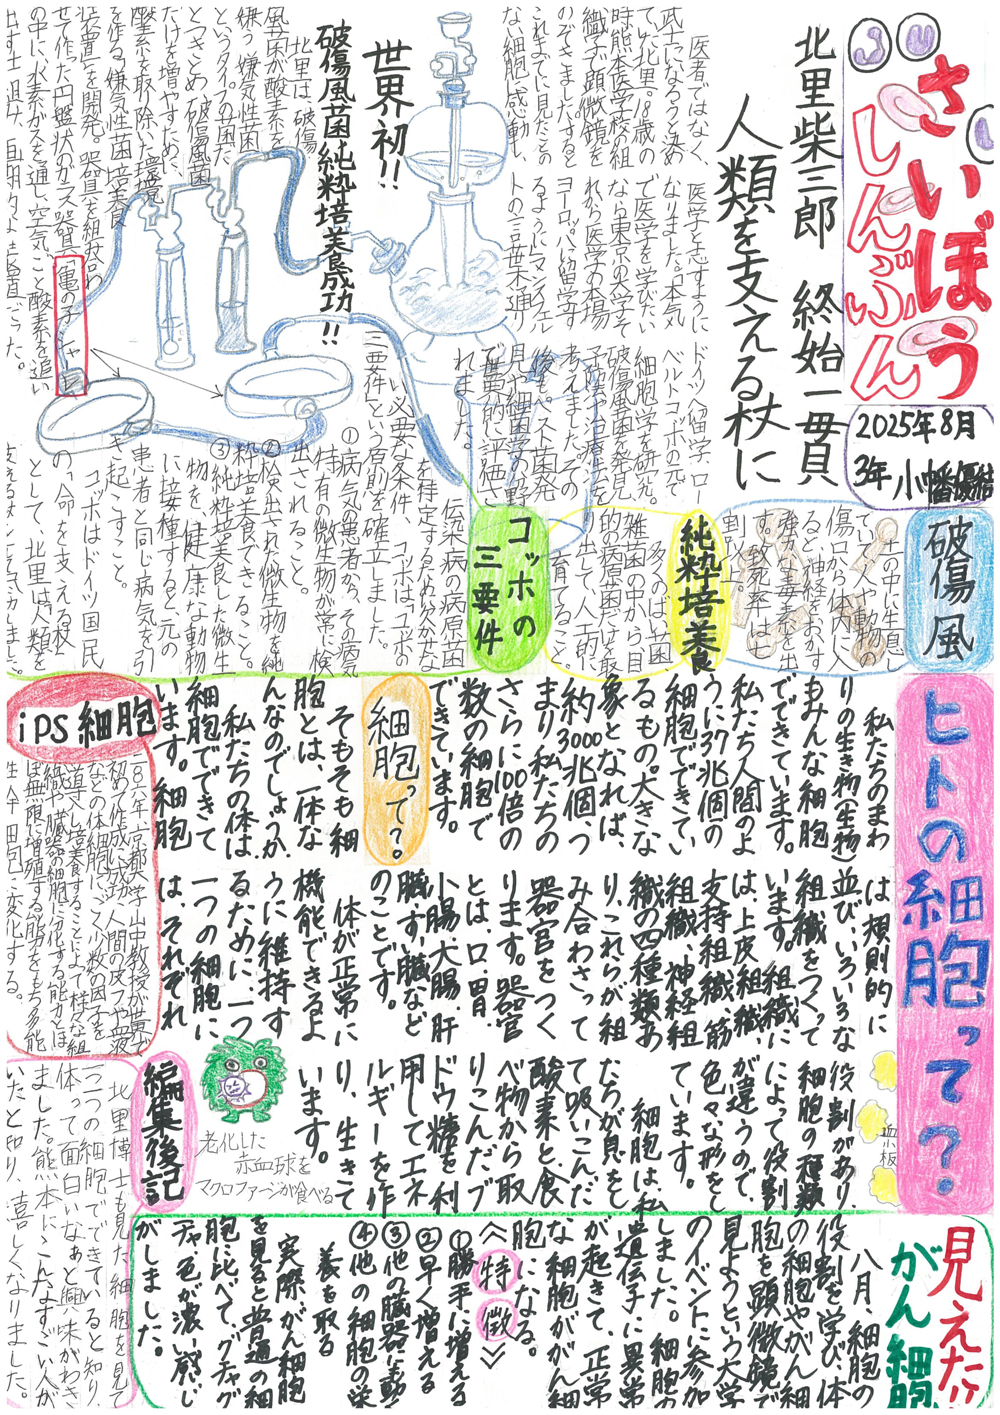 さいぼう
しんぶん
2025年8月
3年 小幡優結
北里柴三郎 終始一貫
人類を支える杖に
医者ではなく
武士になろうと決め
ていた北里。18歳の
時、熊本医学校で組
織学で顕微鏡を
のぞきました。すると
これまでに見たことの
ない細胞に感動し、
医学を志すように
なりました。「本気
で医学を学びたい
なら東京の大学そ
れから医学の本場
ヨーロッパに留学す
るように」マンスフェル
トの言葉通り
ドイツへ留学。ロー
ベルト・コッホの元で、
細胞学を研究。
破傷風菌を発見
予防や治療方法を
考えました。その
後も、ペスト菌発
見や細菌学の分野
で世界的に評価さ
れました。
世界初!!
破傷風菌純粋培養成功!!
北里は、破傷
風菌が酸素を
嫌う「嫌気性菌」
というタイプの菌だ
とつきとめ破傷風菌
だけを増やすため、
酸素を取り除いた環境
を作る「嫌気性菌培養
装置」を開発。器具を組み合わ
せて作った円盤状のガラス器具「亀の子シャーレ」
の中に、水素ガスを通し、空気ごと酸素を追い
破傷風
土の中に生息し
ていて人や動物の
傷口から体に入
る。神経をおかす
強力な毒素を出
す。致死率は七
割以上。
純粋培養
多くのばい菌、
雑菌の中から目
的の病原菌だけを取
り出して、人工的に
育てること。
コッホの
三要件
伝染病の病原菌
を特定するため欠かせな
い必要な条件、コッホは「コッホの
三要件」という原則を確立しました。
①病気の患者から、その病気
特有の微生物が常に検
出されること。
②検出された微生物を純
粋培養できること。
③純粋培養した微生
物を、健康な動物
に接種すると、元の
患者と同じ病気を引
き起こすこと。
コッホはドイツ国民
の命を支える杖
として、北里は人類を
ヒトの細胞って?
私たちのまわ
りの生き物(生物)
もみんな細胞
でできています。
私たち人間のよ
うに37兆個の
細胞でできてい
るもの。大きな
象ともなれば、
約3000兆個つ
まり私たちの
さらに100倍の
数の細胞で
できています。
細胞って?
そもそも細
胞とは、一体な
んなのでしょうか。
私たちの体は
細胞でできて
います。細胞
は規則的に
並び、いろいろな
組織をつくって
います。組織に
は、上皮組織、
支持組織、筋
組織、神経組
織の四種類あ
り、これらが組
み合わさって
器官をつく
ります。器官
とは、口、胃、
小腸、大腸、肝
臓、すい臓など
のことです。
体が正常に
機能できるよ
うに維持す
るために一つ
一つの細胞に
は、それぞれ
役割があり
細胞の種類
によって役割
が違うので、
色々な形をし
ています。
細胞は、私
たちが息をし
て吸いこんだ
酸素と、食
べ物から取
りこんだブ
ドウ糖を利
用してエネ
ルギーを作
り、生きて
います。
血小板
老化した
赤血球を
マクロファージが食べる
iPS細胞
初めて作成に成功。人間の皮フや血液
などの体細胞に、ごく少数の因子を
導入し、培養することによって様々な組
織や臓器の細胞に分化する能力とほ
ぼ無限に増殖する能力をもつ多能
見えた!!
がん細胞
八月、細胞の
役割を学び、体
の細胞やがん細
胞を顕微鏡で
見ようという大学
のイベントに参加
しました。細胞の
遺伝子に異常
が起きて、正常
な細胞ががん細
胞になる。
<特徴>
①勝手に増える
②早く増える
③他の臓器に動く
④他の細胞の栄
養を取る
実際がん細胞
を見ると普通の細
胞に比べてグチャグ
チャ色が濃い感じ
がしました。
編集後記
北里博士も見た細胞を見て
一つ一つの細胞でできていると知り、
体って面白いなぁと興味がわき
ました。熊本にこんなすごい人が
いたと知り、嬉しくなりました。